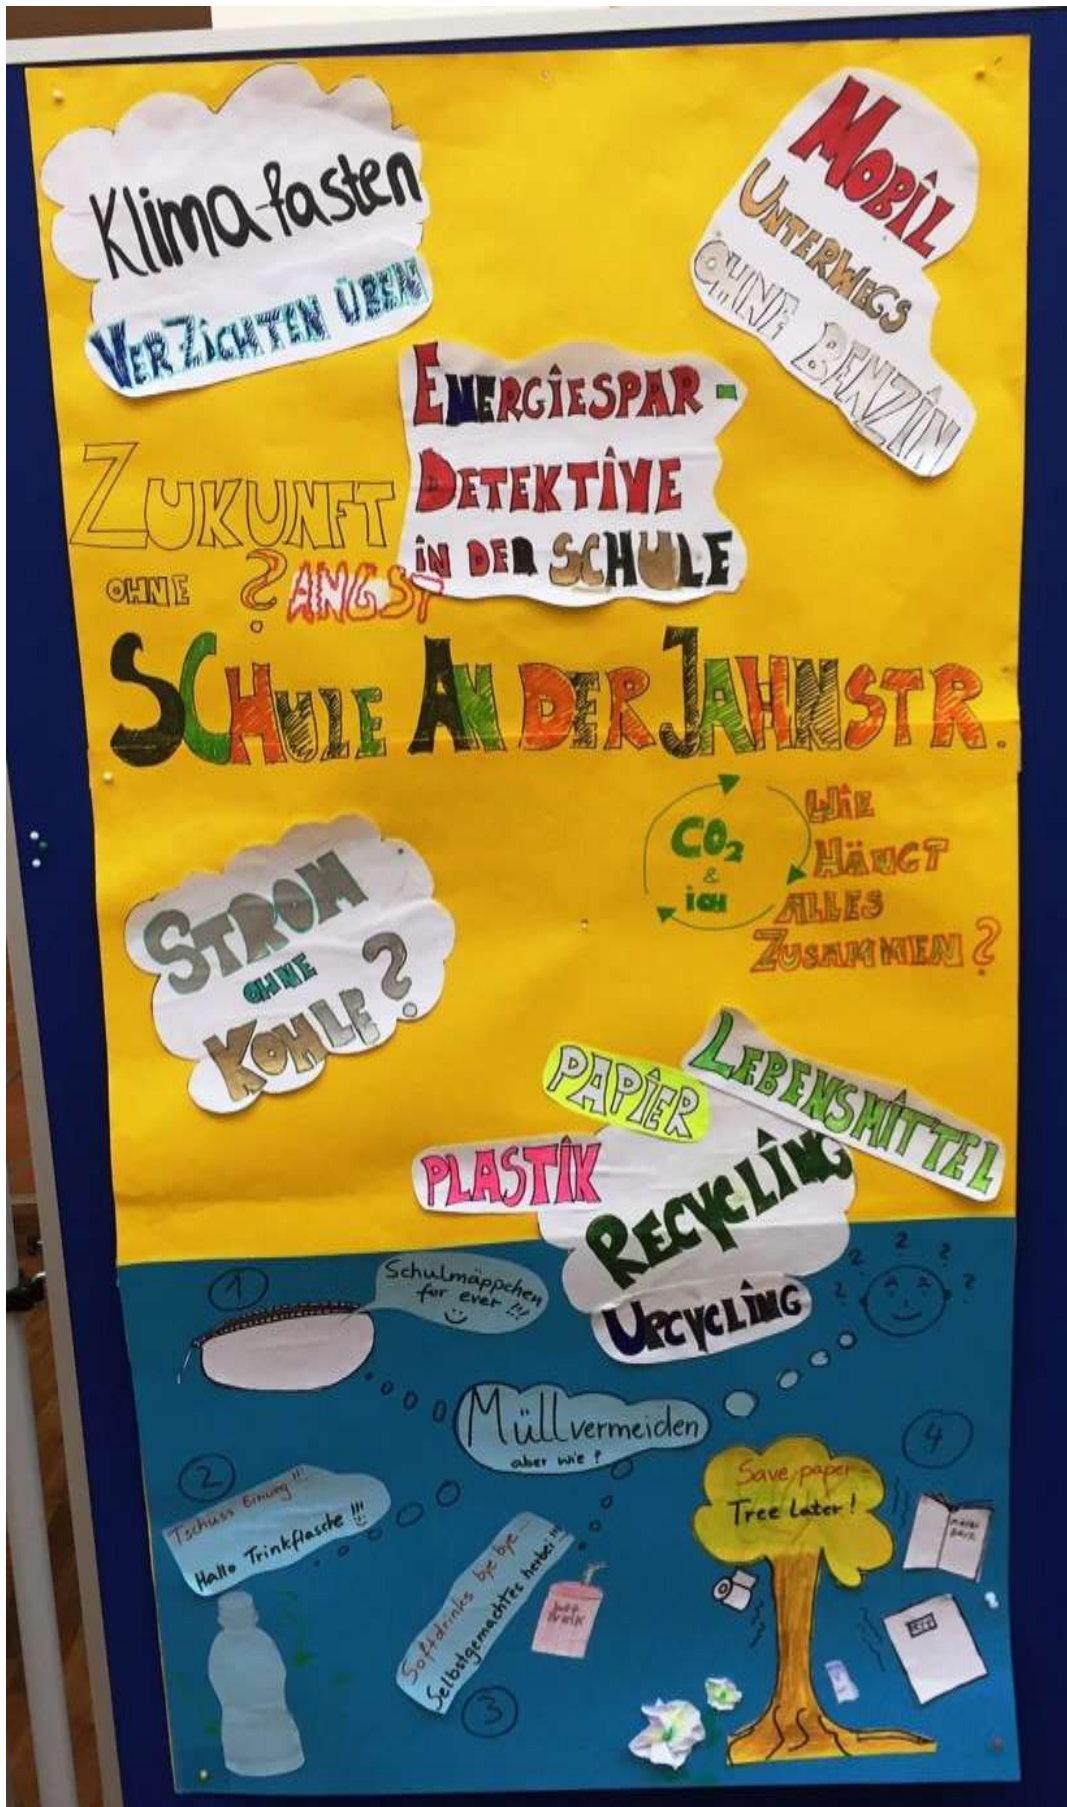 Klima-fasten
VERZICHTEN ÜBEN
MOBIL
UNTERWEGS
OHNE BENZIN
ENERGIESPAR-
DETEKTIVE
IN DER SCHULE
ZUKUNFT
OHNE ? ANGST
SCHULE AN DER JAHNSTR.
CO₂
&
ICH
WIE
HÄNGT
ALLES
ZUSAMMEN?
STROM
OHNE
KOHLE?
PAPIER
LEBENSMITTEL
PLASTIK
RECYCLING
UPCYCLING
1
Schulmäppchen
for ever !!!
? ? ? ? ?
Müllvermeiden
aber wie?
2
Tschüss Einweg !!!
Hallo Trinkflasche !!!
Softdrinks bye bye...
Selbstgemachtes herbei !!!
3
Soft
Drink
4
Save paper -
Tree Later!